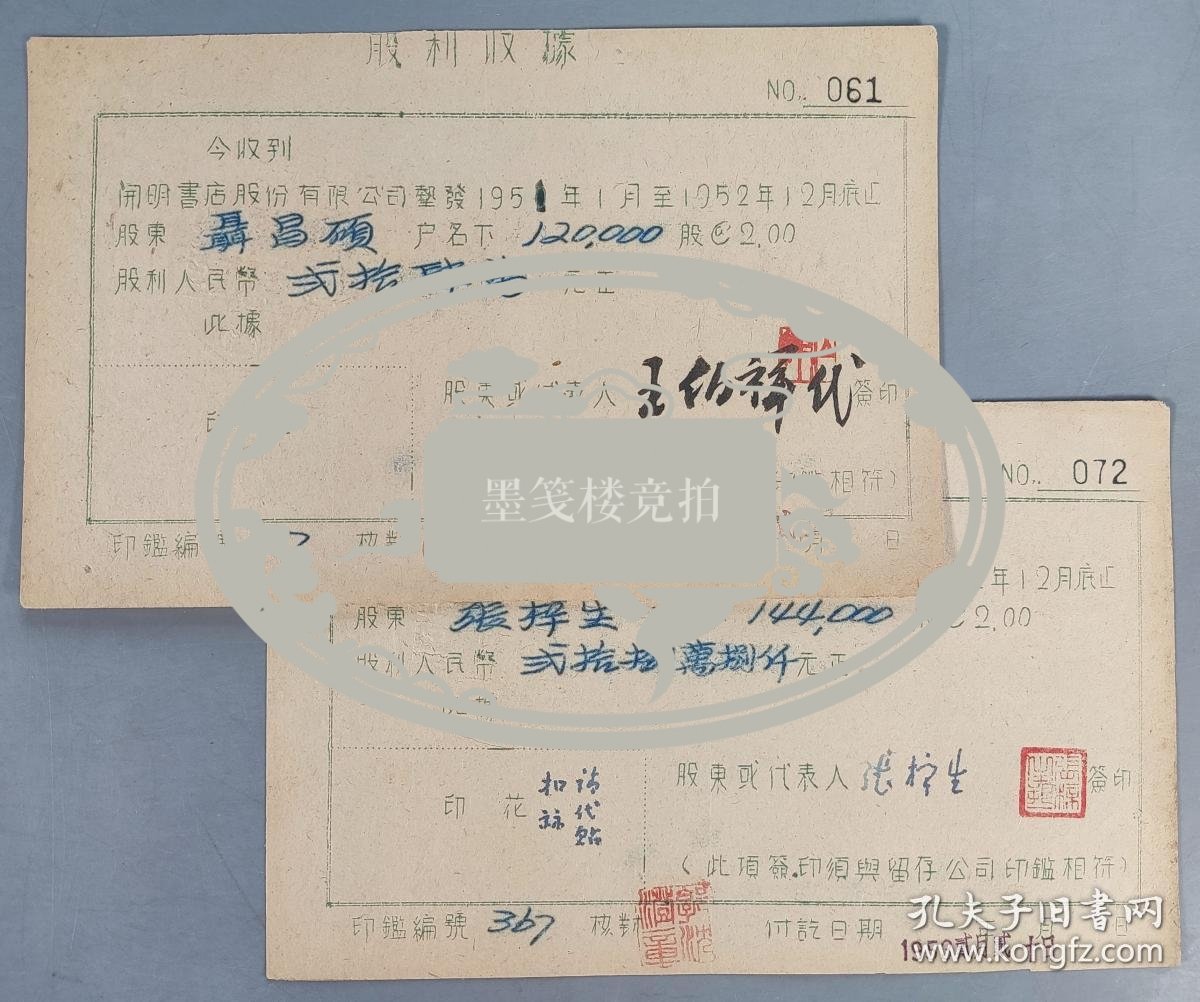 股利收據
NO. 061
今收到
開明書店股份有限公司墊發1951年1月至1952年12月底止
股東 聶昌碩 户名下 120,000 股@2.00
股利人民幣 弍拾 元正
此據
股東或代表人 王伯祥代 簽印
印
鑑相符)
印鑑編 核對 月 日
墨笺楼竞拍
NO. 072
年12月底止
股東 張梓生 144,000 @2.00
股利人民幣 弍拾 萬捌仟元正
股東或代表人 張梓生 簽印
印花 請代貼 扣
(此項簽印須與留存公司印鑑相符)
印鑑編號 367 核對 付訖日期 月 日
孔夫子旧书网
www.kongfz.com